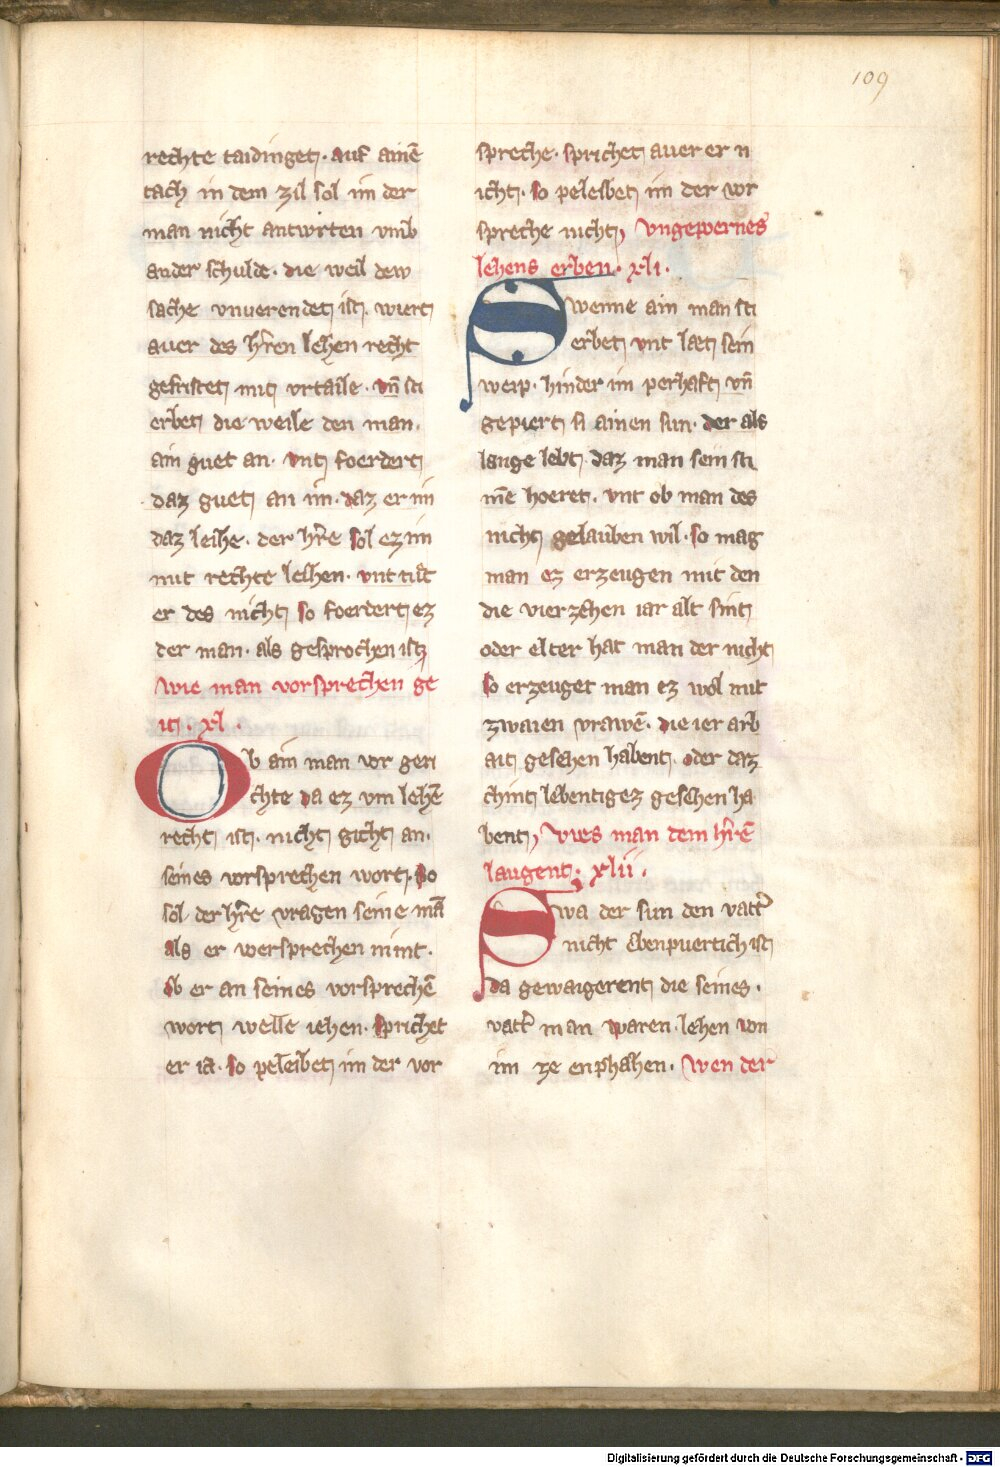 109
rechte taidinget. auf ainē
tach in dem zil sol im der
man nicht antwrten vmb
ander schulde. die weil dew
sache vnuerendet ist. wiert
auer des hr̄en lehen recht
gefristet mit vrtaile. vn̄ sti
erbet die weile den man.
ain guet an. vnt foerdert
daz guet an im. daz er im
daz leihe. der hr̄e sol ez im
mit rechte leihen. vnt tut
er des nicht so foerdert ez
der man. als gesprochen ist
wie man vorsprechen ge
it. xl.
Ob ain man vor geri
chte da ez vm lehē
recht ist. nicht gicht an.
seines vorsprechen wort. so
sol der hr̄e vragen seine mā
als er wersprechen nimt.
ob er an seines vorsprechē
wort welle iehen. sprichet
er ia. so peleibet im der vor
spreche. sprichet auer er n
icht. so peleibet im der vor
spreche nicht, vngepernes
lehens erben. xli.
Swenne ain man sti
erbet vnt læt sein
weip. hinder im perhaft vn̄
gepiert si ainen sun. der als
lange lebt. daz man sein sti
m̄e hoeret. vnt ob man des
nicht gelauben wil. so mag
man ez erzeugen mit den
die vierzehen iar alt sint
oder elter hat man der nicht
so erzeuget man ez wol mit
zwaien vrawē. die ier arb
ait gesehen habent. oder daz
chint lebentigez gesehen ha
bent, wies man dem hr̄ē
laugent. xlii.
Swa der sun den vatr̄
nicht ebenpuertich ist
da gewaigerent die seines.
vatr̄ man waren. lehen von
im ze enphahen. wen der
Digitalisierung gefördert durch die Deutsche Forschungsgemeinschaft - DFG